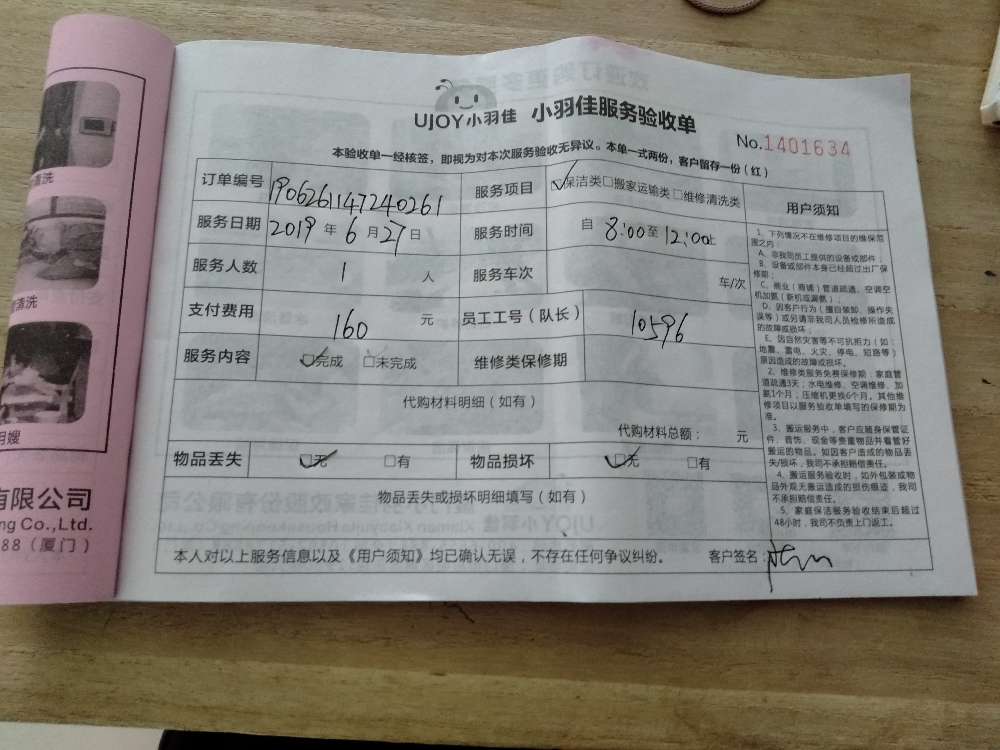 UJOY小羽佳 小羽佳服务验收单
No.1401634
本验收单一经核签，即视为对本次服务验收无异议。本单一式两份，客户留存一份（红）
订单编号 190626114724026 1 服务项目 保洁类 搬家运输类 维修清洗类
服务日期 2019 年 6 月 27 日 服务时间 自 8:00 至 12:00 止
服务人数 1 人 服务车次 车/次
支付费用 160 元 员工工号（队长） 10596
服务内容 完成 未完成 维修类保修期
代购材料明细（如有）
代购材料总额： 元
物品丢失 无 有 物品损坏 无 有
物品丢失或损坏明细填写（如有）
本人对以上服务信息以及《用户须知》均已确认无误，不存在任何争议纠纷。 客户签名：
用户须知
1、下列情况不在维修项目的维保范
围之内：
A、非我司员工提供的设备或部件；
B、设备或部件本身已经超过出厂保
修期；
C、商业（商铺）管道疏通、空调空
机加氨（新机或漏氨）；
D、因客户行为（擅自装卸、操作失
误等）或另请非我司人员检修所造成
的故障或损坏；
E、因自然灾害等不可抗拒力（如：
地震、雷电、火灾、停电、短路等）
原因造成的故障或损坏。
2、维修类服务免费保修期：家庭管
道疏通3天；水电维修、空调维修、加
氨1个月；压缩机更换6个月。其他维
修项目以服务验收单填写的保修期为
准。
3、搬运服务中，客户应随身保管证
件、首饰、现金等贵重物品并看管好
搬运的物品。如因客户造成的物品丢
失/损坏，我司不承担赔偿责任。
4、搬运服务验收时，如外包装或物
品外观无搬运造成的损伤痕迹，我司
不承担赔偿责任。
5、家庭保洁服务验收结束后超过
48小时，我司不负责上门返工。
清洗
清洗
月嫂
有限公司
ng Co.,Ltd.
88（厦门）